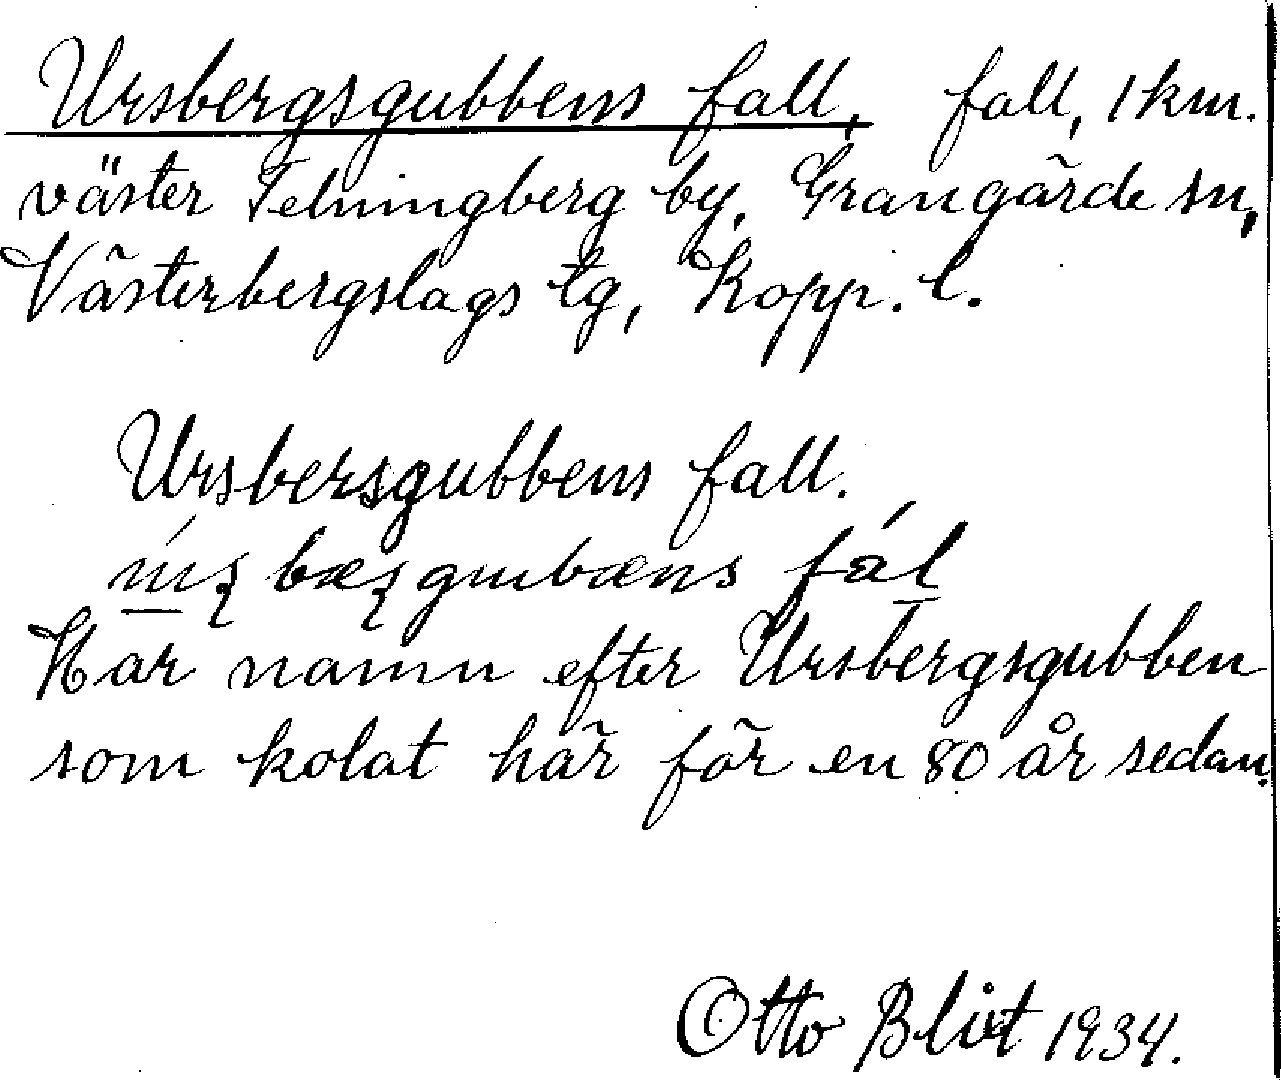 Ursbergsgubbens fall, fall, 1 km.
väster Felningberg by, Grangärde sn,
Västerbergslags tg, Kopp. l.
Ursbersgubbens fall.
fál
Har namn efter Ursbergsgubben
som kolat här för en 80 år sedan.
Otto Blixt 1934.